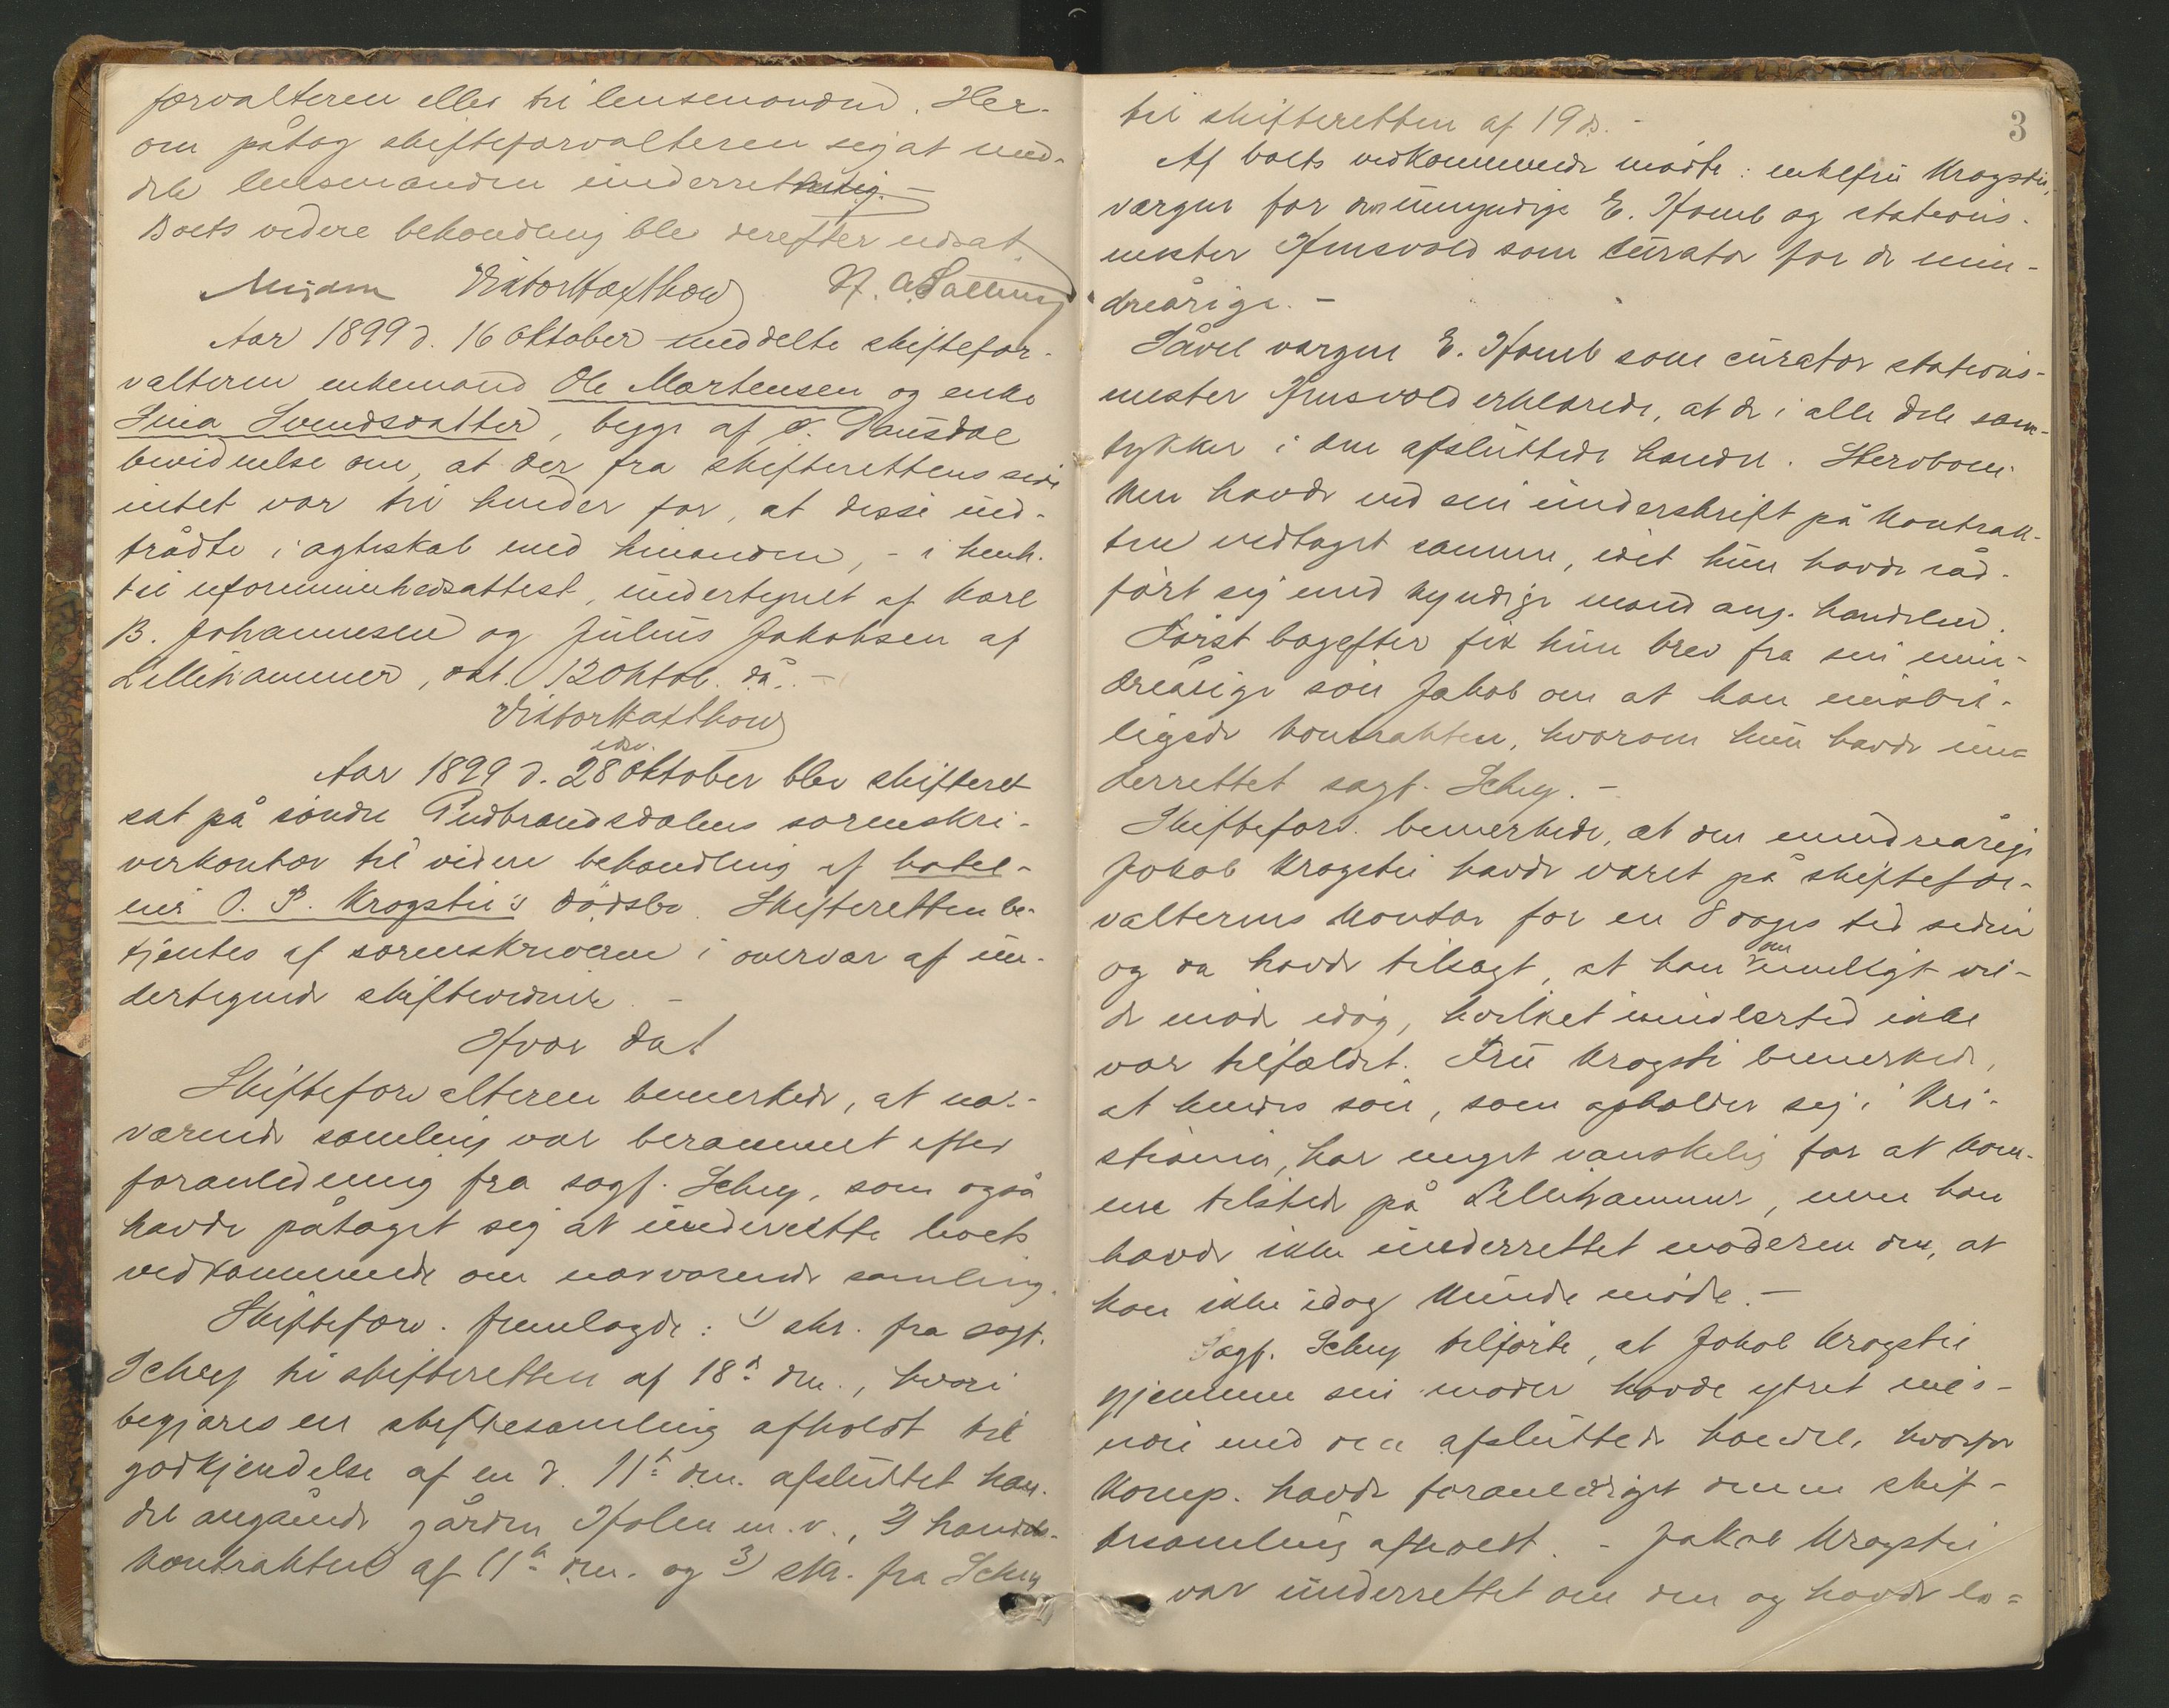 forvalteren eller til lensmanden. Her-
om påtog skifteforvalteren sig at med-
dele lensmanden underretning. -
Boets videre behandling blev derefter udsat.
Viktor Hafthow N. A. Salling
Aar 1899 d. 16 oktober meddelte skiftefor-
valteren enkemand Ole Martensen og enke
Lina Svendsdatter, begge af
bevidnelse om, at der fra skifterettens side
intet var til hinder for, at disse ind-
trådte i ægteskab med hinanden, - i henh.
til uformuenhedsattest, undertegnet af Karl
B. Johannesen og Julius Jakobsen af
Lillehammer, dat. 12 oktob. då. -
Viktor Hafthow
Aar 1899 d. 28 oktober blev skifteret
sat på søndre Gudbrandsdalens sorenskri-
verkontor til videre behandling af hotel-
eier O. P. Krogstie's dødsbo. Skifteretten be-
tjentes af sorenskriveren i overvær af un-
dertegnede skiftevidner. -
Hvor da!
Skifteforvalteren bemerkede, at nær-
værende samling var berammet efter
foranledning fra sagf. Schey, som også
havde påtaget sig at underrette boets
vedkommende om nærværende samling.
Skifteforv. fremlagde: 1) skr. fra sagf.
Schey til skifteretten af 18de dm., hvori
begjæres en skiftesamling afholdt til
godkjendelse af en d. 11te dm. afsluttet han-
del angående gården Holen m. v., 2) handels-
kontrakten af 11te dm. og 3) skr. fra Schey
3
til skifteretten af 19 ds. -
Af boets vedkommende mødte: enkefru Krogstie,
værgen for den umyndige E. Homb og stations-
mester Hunsvold som curator for de min-
dreårige. -
Såvel værgen E. Homb som curator stations-
mester Hunsvold erklærede, at de i alle dele sam-
tykker i den afsluttede handel. Stervboen-
ken havde ved sin underskrift på kontrak-
ten vedtaget samme, idet hun havde råd-
ført sig med kyndige mænd ang. handelen.
Først bagefter fik hun brev fra sin min-
dreårige søn Jakob om at han misbil-
ligede kontrakten, hvorom hun havde un-
derrettet sagf. Schey. -
Skifteforv. bemerkede, at den mindreårige
Jakob Krogstie havde været på skiftefor-
valterens kontor for en 8 dages tid siden
og da havde tilsagt, at han om muligt vil-
de møde idag, hvilket imidlertid ikke
var tilfældet. Fru Krogstie bemerkede,
at hendes søn, som opholder sig i Kri-
stiania, har meget vanskelig for at kom-
me tilstede på Lillehammer, men han
havde ikke underrettet moderen om, at
han ikke idag kunde møde. -
Sagf. Schey tilførte, at Jakob Krogstie
gjennem sin moder havde ytret mis-
nøie med den afsluttede handel, hvorfor
komp. havde foranlediget denne skif-
tesamling afholdt. - Jakob Krogstie
var underrettet om den og havde lo=